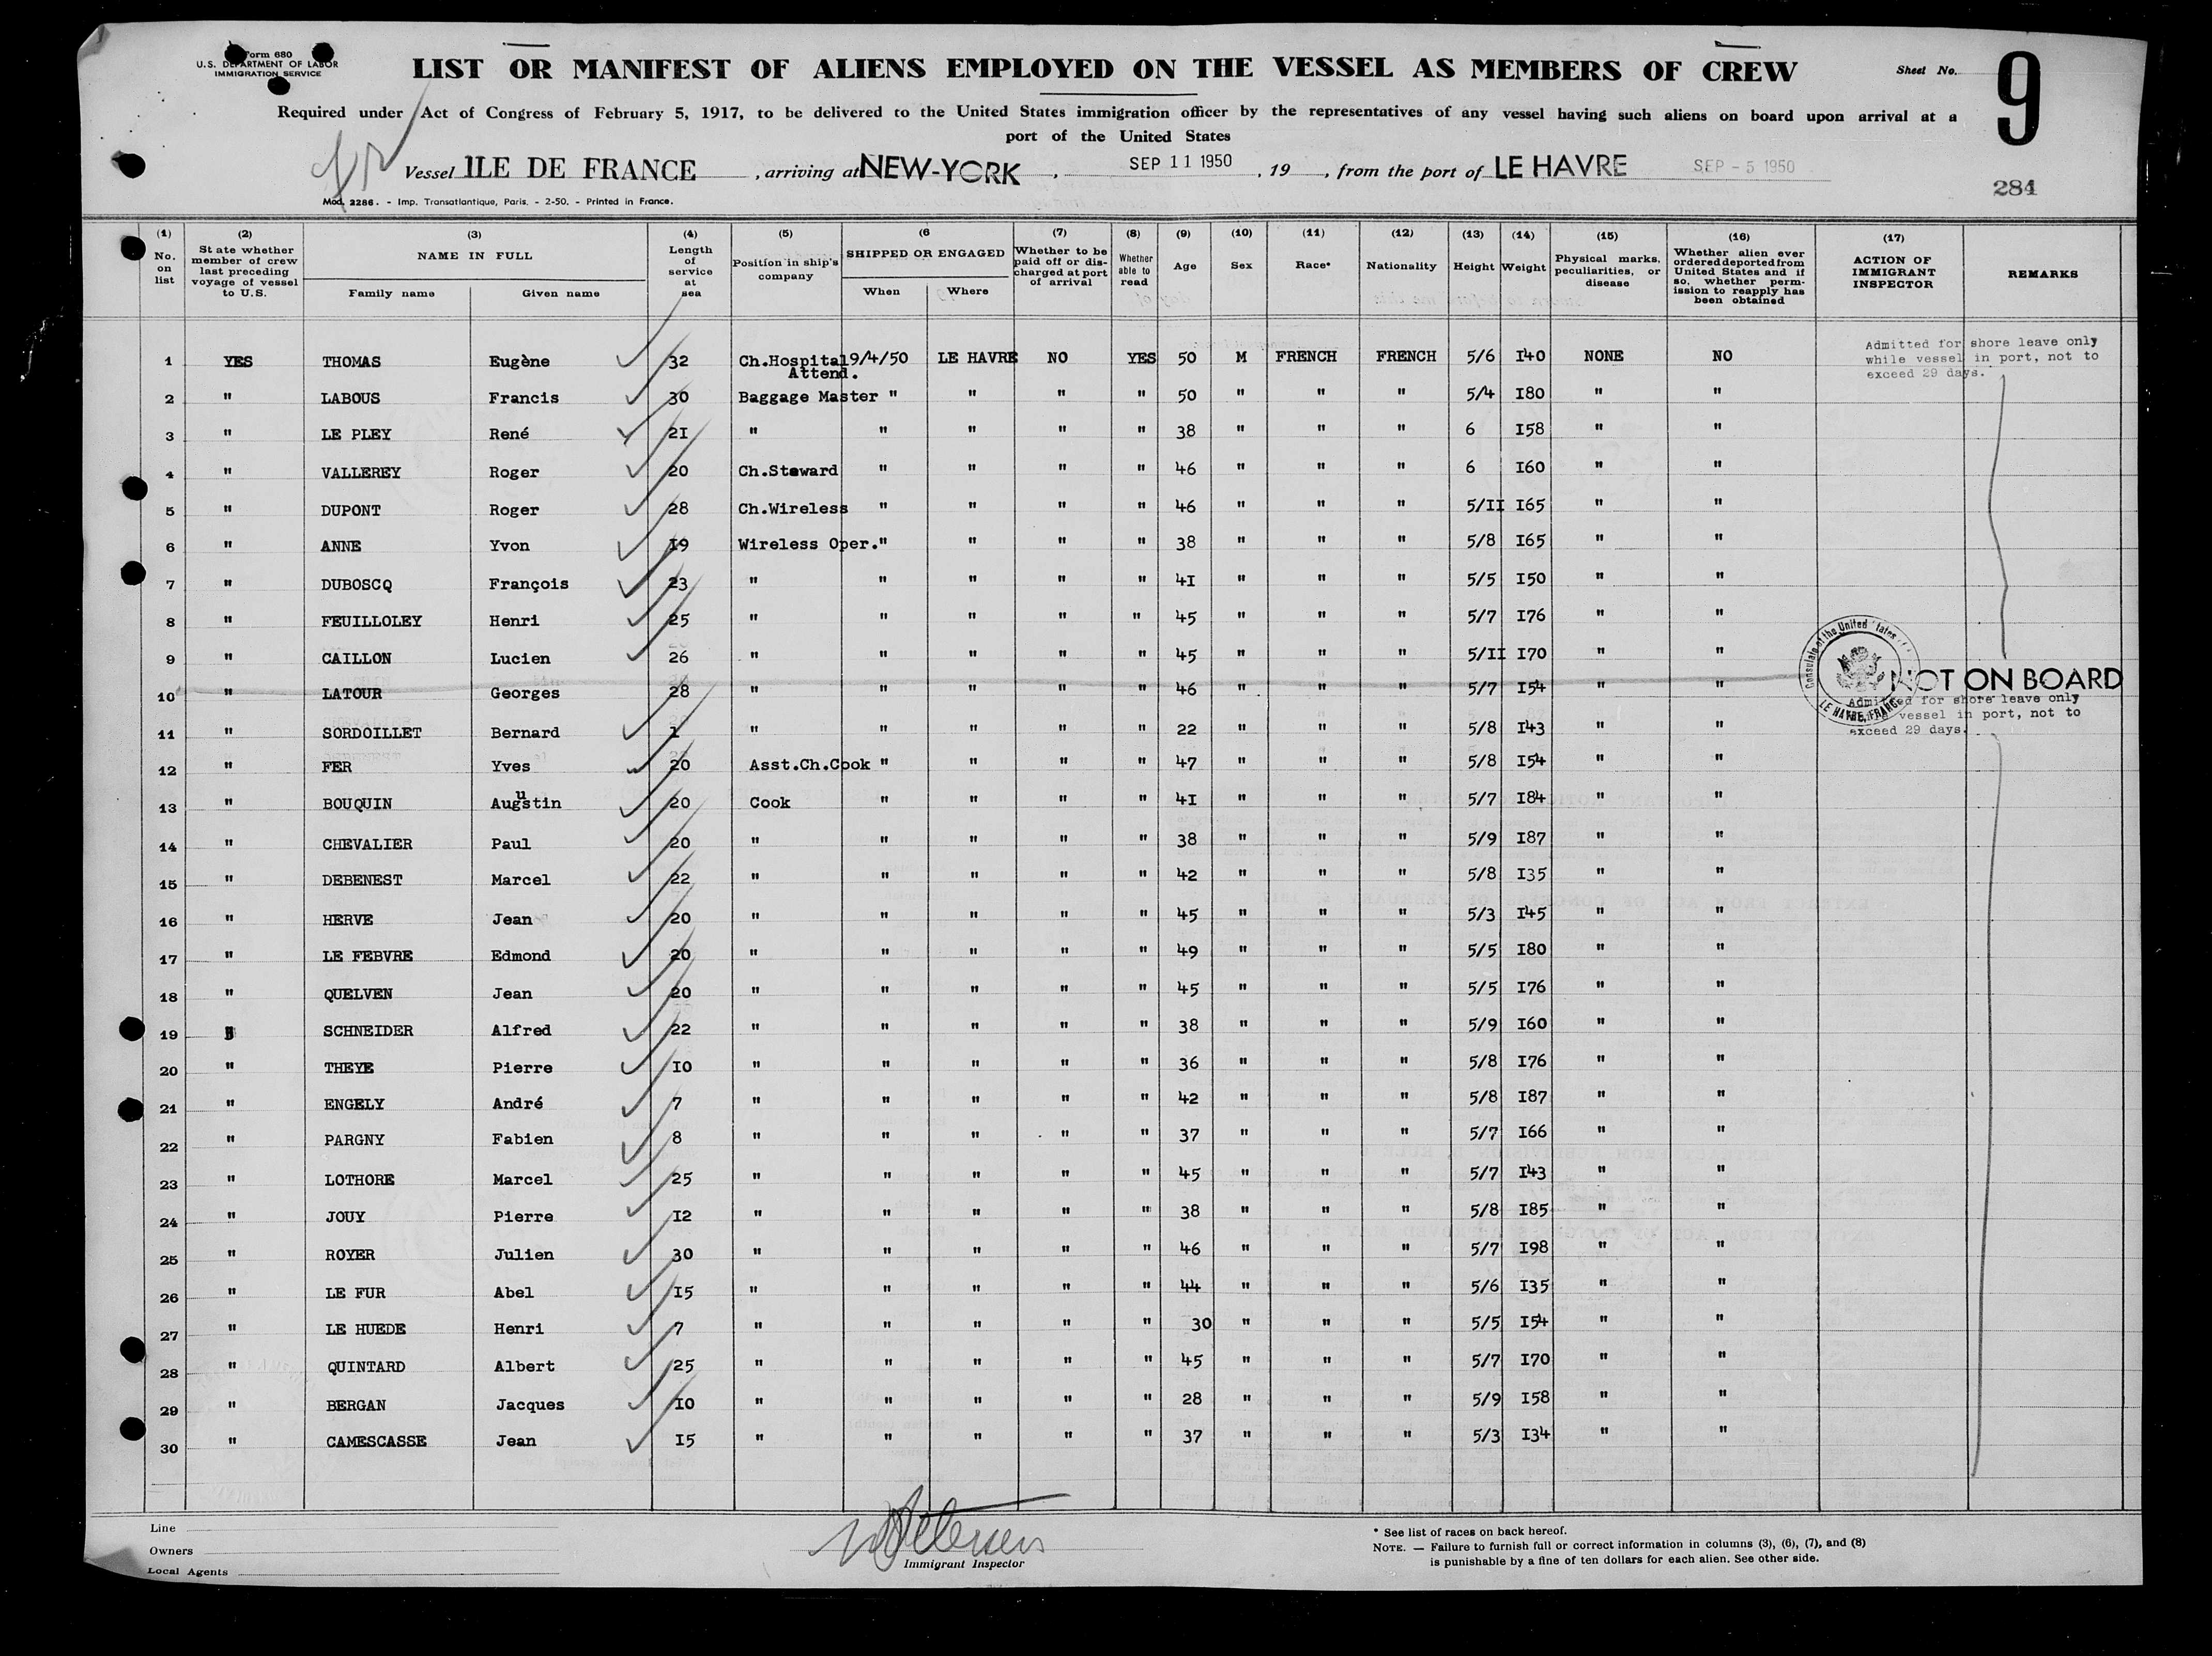 Form 680
U.S. DEPARTMENT OF LABOR
IMMIGRATION SERVICE
LIST OR MANIFEST OF ALIENS EMPLOYED ON THE VESSEL AS MEMBERS OF CREW
Sheet No. 9
Required under Act of Congress of February 5, 1917, to be delivered to the United States immigration officer by the representatives of any vessel having such aliens on board upon arrival at a
port of the United States
Vessel ILE DE FRANCE, arriving at NEW-YORK, SEP 11 1950, 19 , from the port of LE HAVRE SEP - 5 1950
284
Mod. 2286. - Imp. Transatlantique, Paris. - 2-50. - Printed in France.
(1) No. on list (2) State whether member of crew last preceding voyage of vessel to U.S. (3) NAME IN FULL Family name Given name (4) Length of service at sea (5) Position in ship's company (6 SHIPPED OR ENGAGED When Where (7) Whether to be paid off or discharged at port of arrival (8) Whether able to read (9) Age (10) Sex (11) Race* (12) Nationality (13) Height (14) Weight (15) Physical marks, peculiarities, or disease (16) Whether alien ever ordered deported from United States and if so, whether permission to reapply has been obtained (17) ACTION OF IMMIGRANT INSPECTOR REMARKS
1 YES THOMAS Eugène 32 Ch.Hospital Attend. 9/4/50 LE HAVRE NO YES 50 M FRENCH FRENCH 5/6 I40 NONE NO Admitted for shore leave only while vessel in port, not to exceed 29 days.
2 " LABOUS Francis 30 Baggage Master " " " " 50 " " " 5/4 I80 " "
3 " LE PLEY René 2I " " " " " 38 " " " 6 I58 " "
4 " VALLEREY Roger 20 Ch.Steward " " " " 46 " " " 6 I60 " "
5 " DUPONT Roger 28 Ch.Wireless " " " " 46 " " " 5/II I65 " "
6 " ANNE Yvon I9 Wireless Oper. " " " " 38 " " " 5/8 I65 " "
7 " DUBOSCQ François 23 " " " " " 4I " " " 5/5 I50 " "
8 " FEUILLOLEY Henri 25 " " " " " 45 " " " 5/7 I76 " "
9 " CAILLON Lucien 26 " " " " " 45 " " " 5/II I70 " "
10 " LATOUR Georges 28 " " " " " 46 " " " 5/7 I54 " " NOT ON BOARD
Consulate of the United States LE HAVRE, FRANCE
Admitted for shore leave only
vessel in port, not to
exceed 29 days.
11 " SORDOILLET Bernard I " " " " " 22 " " " 5/8 I43 " "
12 " FER Yves 20 Asst.Ch.Cook " " " " 47 " " " 5/8 I54 " "
13 " BOUQUIN Augustin 20 Cook " " " " 4I " " " 5/7 I84 " "
14 " CHEVALIER Paul 20 " " " " " 38 " " " 5/9 I87 " "
15 " DEBENEST Marcel 22 " " " " " 42 " " " 5/8 I35 " "
16 " HERVE Jean 20 " " " " " 45 " " " 5/3 I45 " "
17 " LE FEBVRE Edmond 20 " " " " " 49 " " " 5/5 I80 " "
18 " QUELVEN Jean 20 " " " " " 45 " " " 5/5 I76 " "
19 SCHNEIDER Alfred 22 " " " " " 38 " " " 5/9 I60 " "
20 " THEYE Pierre I0 " " " " " 36 " " " 5/8 I76 " "
21 " ENGELY André 7 " " " " " 42 " " " 5/8 I87 " "
22 " PARGNY Fabien 8 " " " " " 37 " " " 5/7 I66 " "
23 " LOTHORE Marcel 25 " " " " " 45 " " " 5/7 I43 " "
24 " JOUY Pierre I2 " " " " " 38 " " " 5/8 I85 " "
25 " ROYER Julien 30 " " " " " 46 " " " 5/7 I98 " "
26 " LE FUR Abel I5 " " " " " 44 " " " 5/6 I35 " "
27 " LE HUEDE Henri 7 " " " " " 30 " " " 5/5 I54 " "
28 " QUINTARD Albert 25 " " " " " 45 " " " 5/7 I70 " "
29 " BERGAN Jacques I0 " " " " " 28 " " " 5/9 I58 " "
30 " CAMESCASSE Jean I5 " " " " " 37 " " " 5/3 I34 " "
Line
Owners
Local Agents
Immigrant Inspector
* See list of races on back hereof.
NOTE. — Failure to furnish full or correct information in columns (3), (6), (7), and (8)
is punishable by a fine of ten dollars for each alien. See other side.